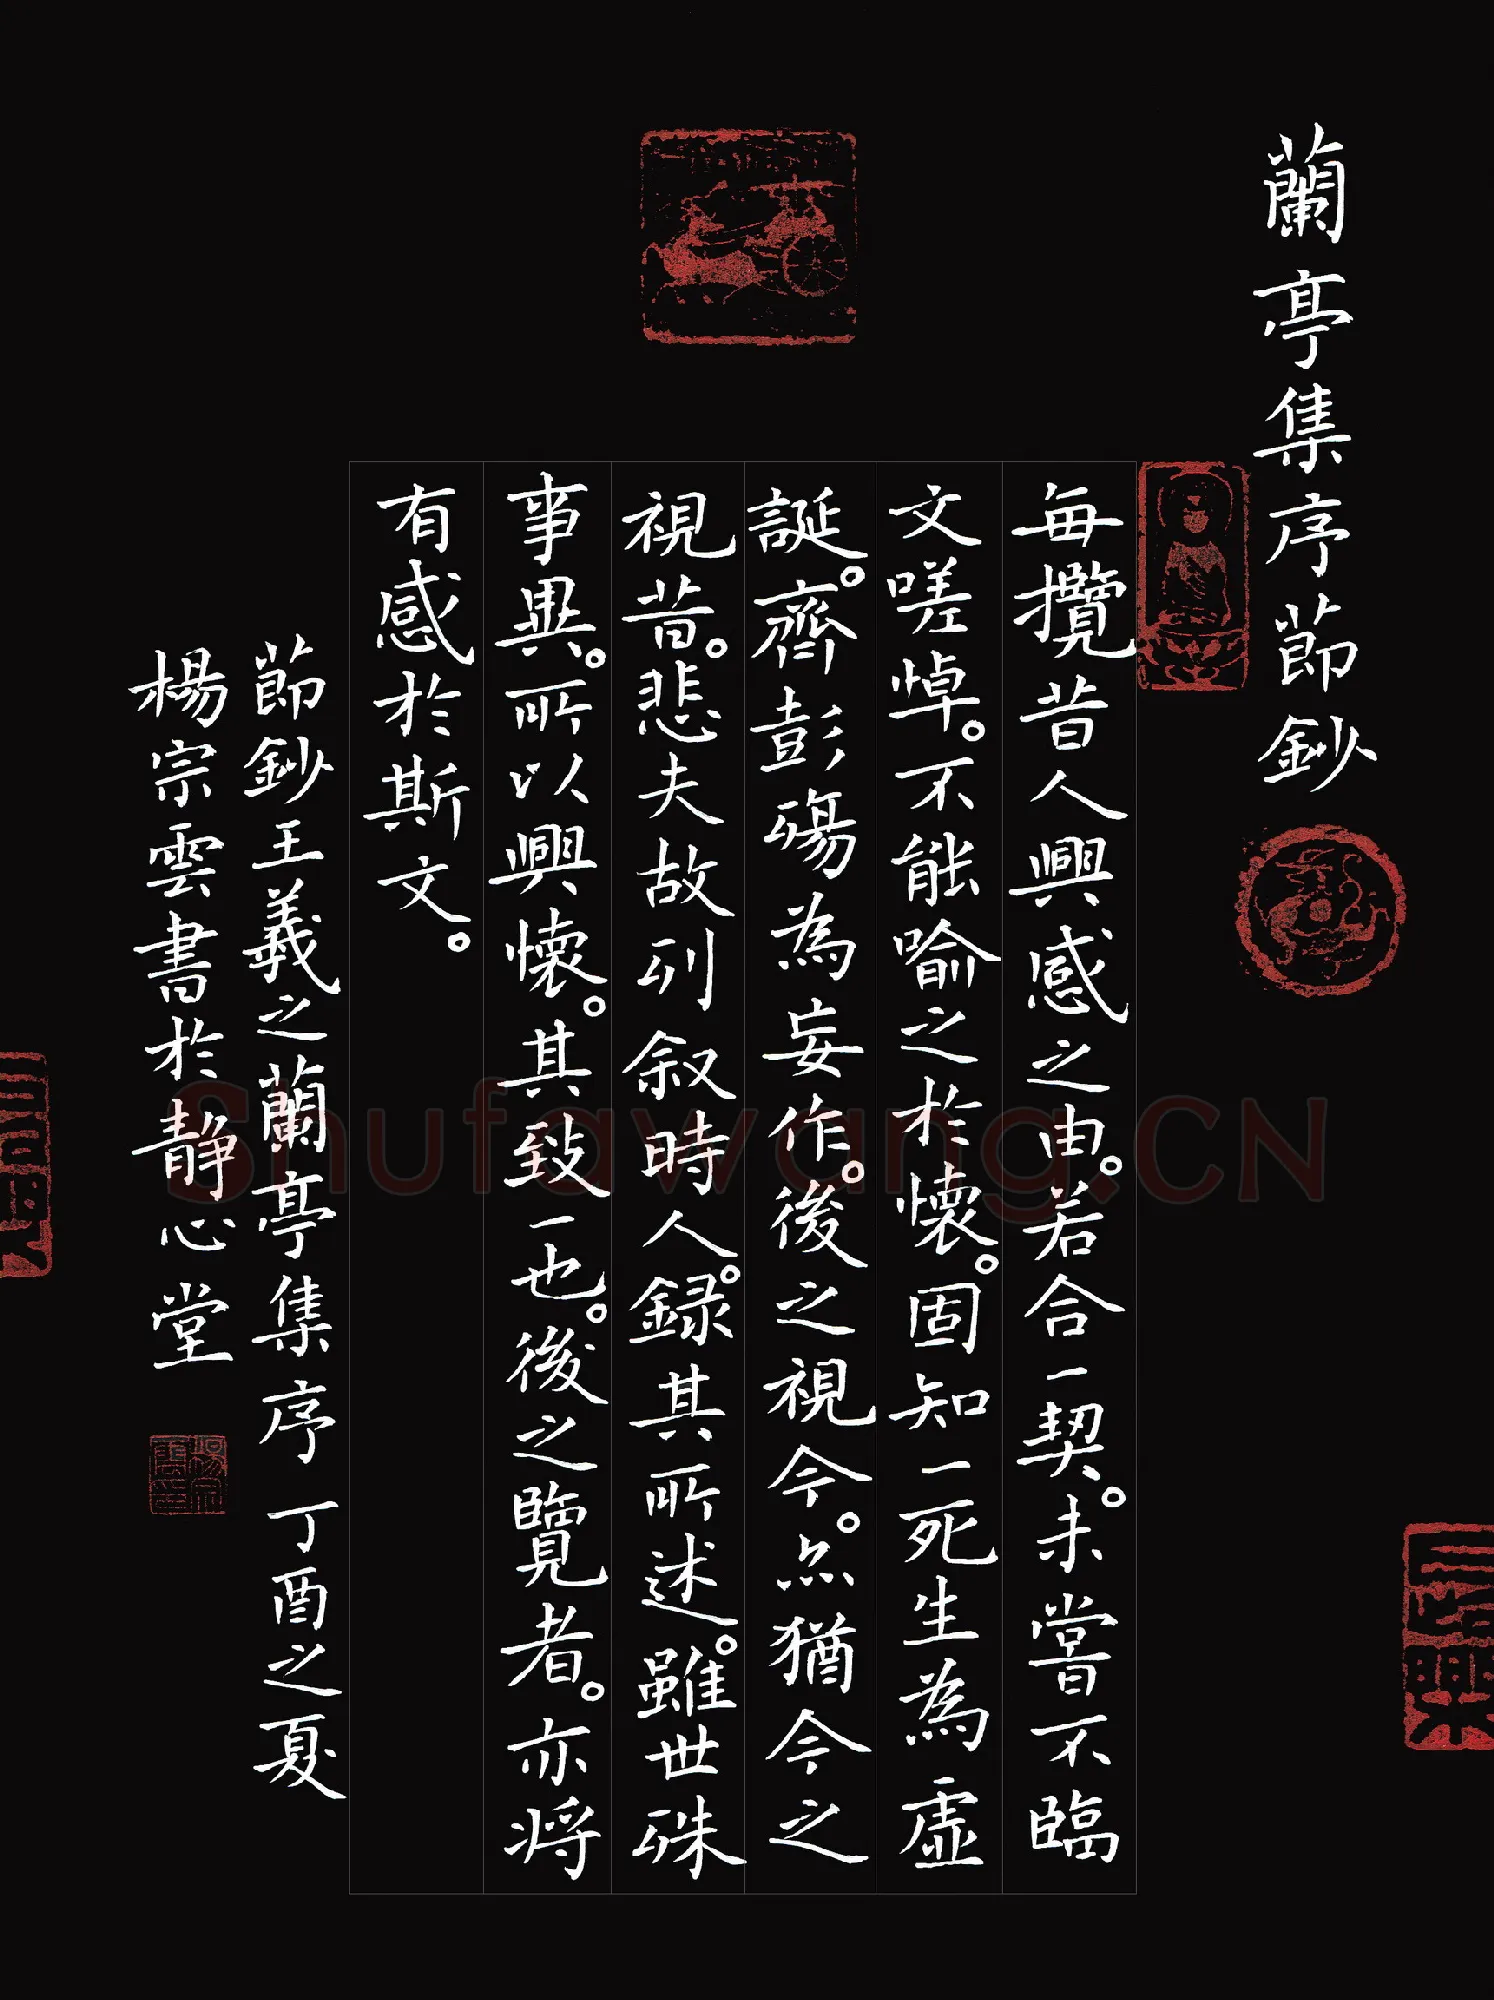 蘭亭集序節鈔
每攬昔人興感之由。若合一契。未嘗不臨
文嗟悼。不能喻之於懷。固知一死生為虛
誕。齊彭殤為妄作。後之視今。亦猶今之
視昔。悲夫故列叙時人。録其所述。雖世殊
事異。所以興懷。其致一也。後之覽者。亦將
有感於斯文。
節鈔王羲之蘭亭集序 丁酉之夏
楊宗雲書於靜心堂
Shufawang.CN